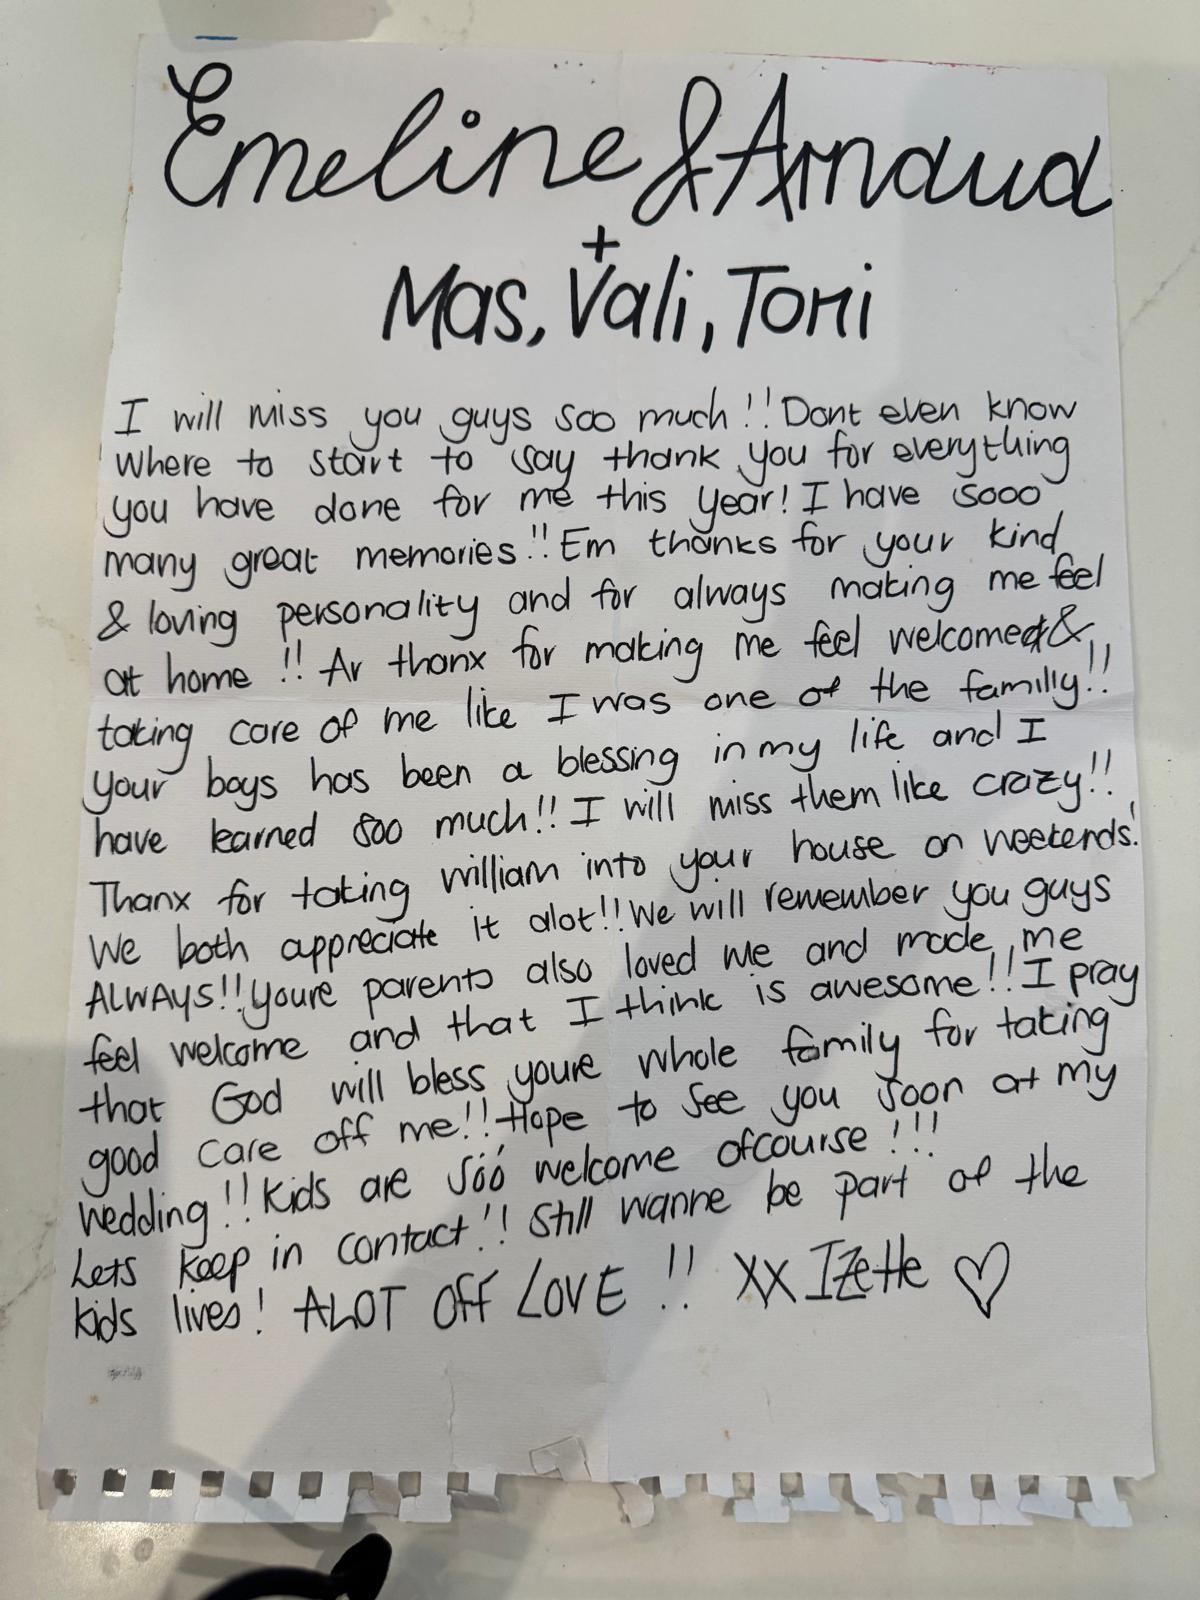 Emeline & Arnaud
+
Mas, Vali, Tomi
I will miss you guys soo much!! Dont even know
where to start to say thank you for everything
you have done for me this year! I have sooo
many great memories!! Em thanks for your kind
& loving personality and for always making me feel
at home!! Ar thanx for making me feel welcomed &
taking care of me like I was one of the familly!!
Your boys has been a blessing in my life and I
have learned soo much!! I will miss them like crazy!!
Thanx for taking william into your house on weekends!
We both appreciate it alot!! We will remember you guys
ALWAYS!! Youre parents also loved me and made me
feel welcome and that I think is awesome!! I pray
that God will bless youre whole family for taking
good care off me!! Hope to see you soon at my
wedding!! Kids are sóó welcome ofcourse!!!
Lets keep in contact!! Still wanne be part of the
kids lives! ALOT Off LOVE!! XX IZette ♡